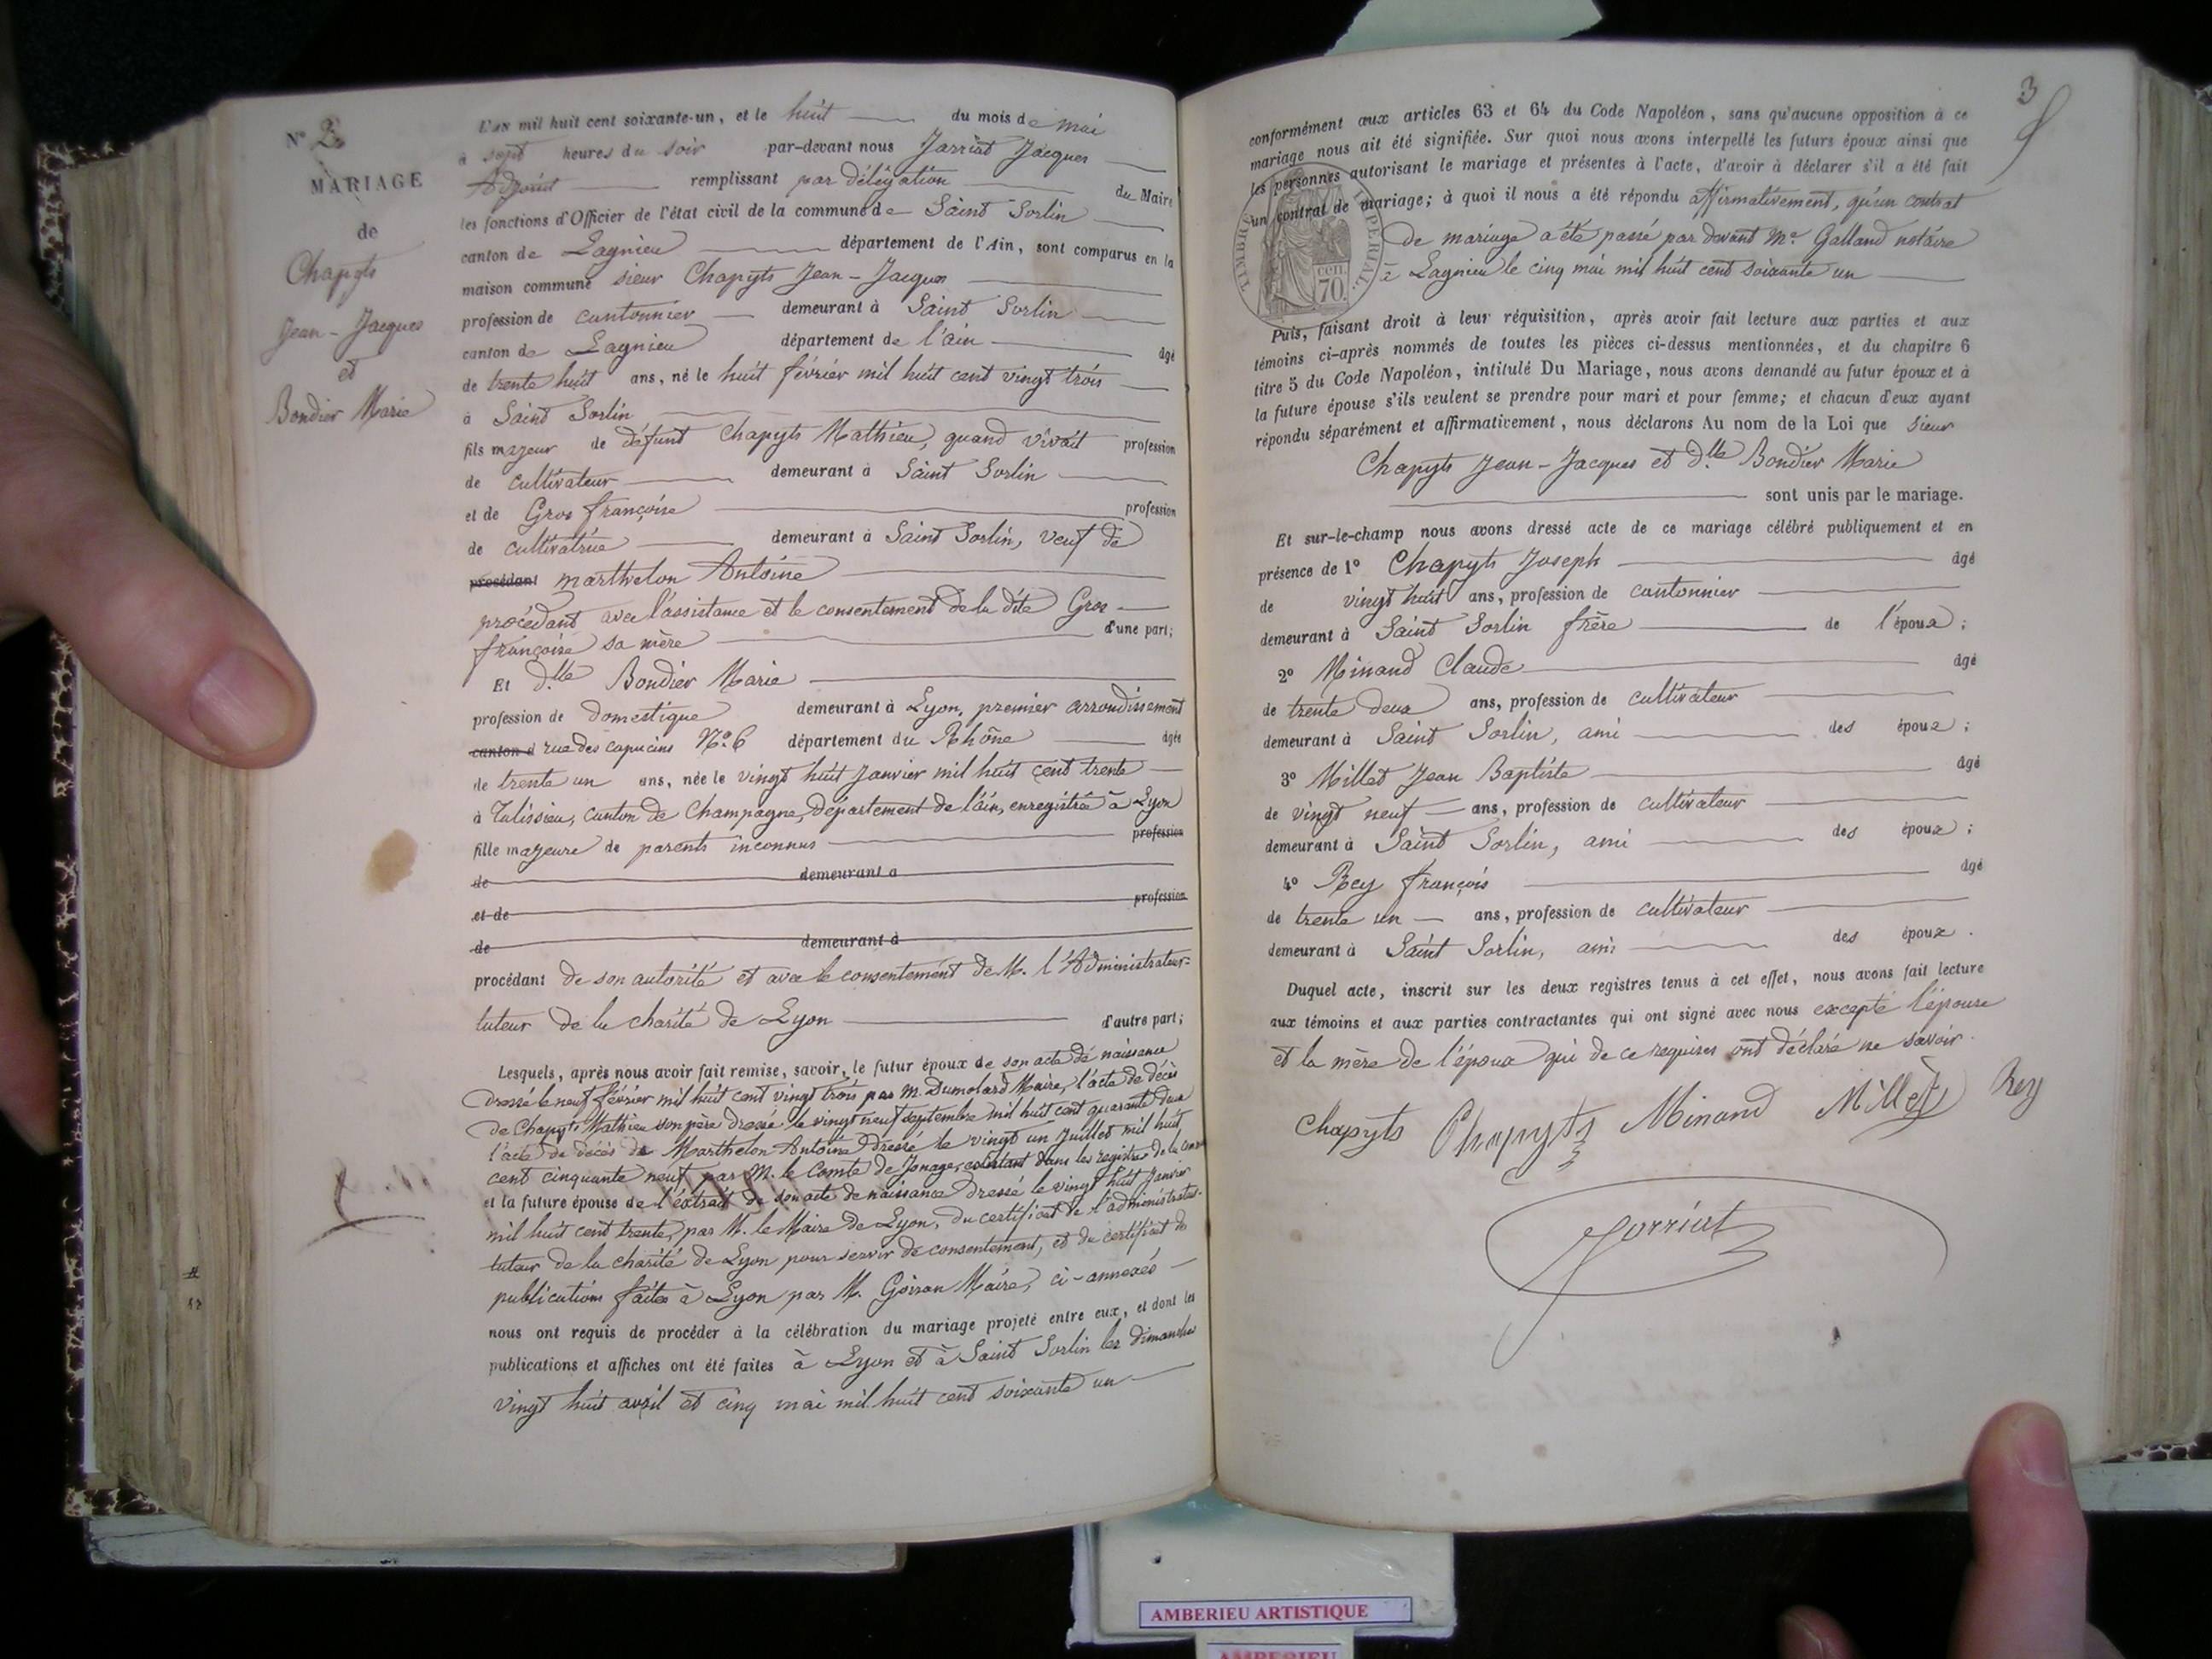 N° 2
MARIAGE
de
Chapyts
Jean-Jacques
et
Bondier Marie
L'an mil huit cent soixante-un, et le huit du mois de mai
à sept heures du soir par-devant nous Jarriat Jacques
Adjoint remplissant par délégation du Maire
les fonctions d'Officier de l'état civil de la commune de Saint Sorlin
canton de Lagnieu département de l'Ain, sont comparus en la
maison commune sieur Chapyts Jean-Jacques
profession de cantonnier demeurant à Saint Sorlin
canton de Lagnieu département de l'ain âgé
de trente huit ans, né le huit février mil huit cent vingt trois
à Saint Sorlin
fils majeur de défunt Chapyts Mathieu, quand vivait profession
de cultivateur demeurant à Saint Sorlin
et de Gros françoise profession
de cultivatrice demeurant à Saint Sorlin, veuf de
procédant marthelon Antoine
procédant avec l'assistance et le consentement de la dite Gros
françoise sa mère d'une part;
Et dlle Bondier Marie
profession de domestique demeurant à Lyon, premier arrondissement
canton d rue des capucins N° 6 département du Rhône âgée
de trente un ans, née le vingt huit Janvier mil huit cent trente
à Talissieu, canton de Champagne, département de l'ain, enregistrée à Lyon
fille majeure de parents inconnus profession
de demeurant à
et de profession
de demeurant à
procédant de son autorité et avec le consentement de M. l'Administrateur-
tuteur de la charité de Lyon d'autre part;
Lesquels, après nous avoir fait remise, savoir, le futur époux de son acte de naissance
dressé le neuf février mil huit cent vingt trois par M. Dumolard Maire, l'acte de décès
de Chapyts Mathieu son père dressé le vingt neuf septembre mil huit cent quarante deux
l'acte de décès de Marthelon Antoine dressé le vingt un Juillet mil huit
cent cinquante neuf, par M. le Comte de Jonage, existant dans les registres de la
et la future épouse de l'extrait de son acte de naissance dressé le vingt huit Janvier
mil huit cent trente, par M. le Maire de Lyon, du certificat de l'administrateur-
tuteur de la charité de Lyon pour servir de consentement, et du certificat de
publications faites à Lyon par M. Maire, ci-annexés
nous ont requis de procéder à la célébration du mariage projeté entre eux, et dont les
publications et affiches ont été faites à Lyon et à Saint Sorlin les dimanches
vingt huit avril et cinq mai mil huit cent soixante un
3
conformément aux articles 63 et 64 du Code Napoléon, sans qu'aucune opposition à ce
mariage nous ait été signifiée. Sur quoi nous avons interpellé les futurs époux ainsi que
les personnes autorisant le mariage et présentes à l'acte, d'avoir à déclarer s'il a été fait
un contrat de mariage; à quoi il nous a été répondu affirmativement, qu'un contrat
de mariage a été passé par devant Me Galland notaire
à Lagnieu le cinq mai mil huit cent soixante un
TIMBRE IMPÉRIAL.
cen.
70.
Puis, faisant droit à leur réquisition, après avoir fait lecture aux parties et aux
témoins ci-après nommés de toutes les pièces ci-dessus mentionnées, et du chapitre 6
titre 5 du Code Napoléon, intitulé Du Mariage, nous avons demandé au futur époux et à
la future épouse s'ils veulent se prendre pour mari et pour femme; et chacun d'eux ayant
répondu séparément et affirmativement, nous déclarons Au nom de la Loi que Sieur
Chapyts Jean-Jacques et dlle Bondier Marie
sont unis par le mariage.
Et sur-le-champ nous avons dressé acte de ce mariage célébré publiquement et en
présence de 1° Chapyts Joseph âgé
de vingt huit ans, profession de cantonnier
demeurant à Saint Sorlin frère de l'époux;
2° Minand Claude âgé
de trente deux ans, profession de cultivateur
demeurant à Saint Sorlin, ami des époux;
3° Millet Jean Baptiste âgé
de vingt neuf ans, profession de cultivateur
demeurant à Saint Sorlin, ami des époux;
4° Rey françois âgé
de trente un ans, profession de cultivateur
demeurant à Saint Sorlin, ami des époux.
Duquel acte, inscrit sur les deux registres tenus à cet effet, nous avons fait lecture
aux témoins et aux parties contractantes qui ont signé avec nous excepté l'épouse
et la mère de l'époux qui de ce requises ont déclaré ne savoir.
Chapyts Chapyts Minand Millet Rey
Jarriat
AMBERIEU ARTISTIQUE
AMBERIEU